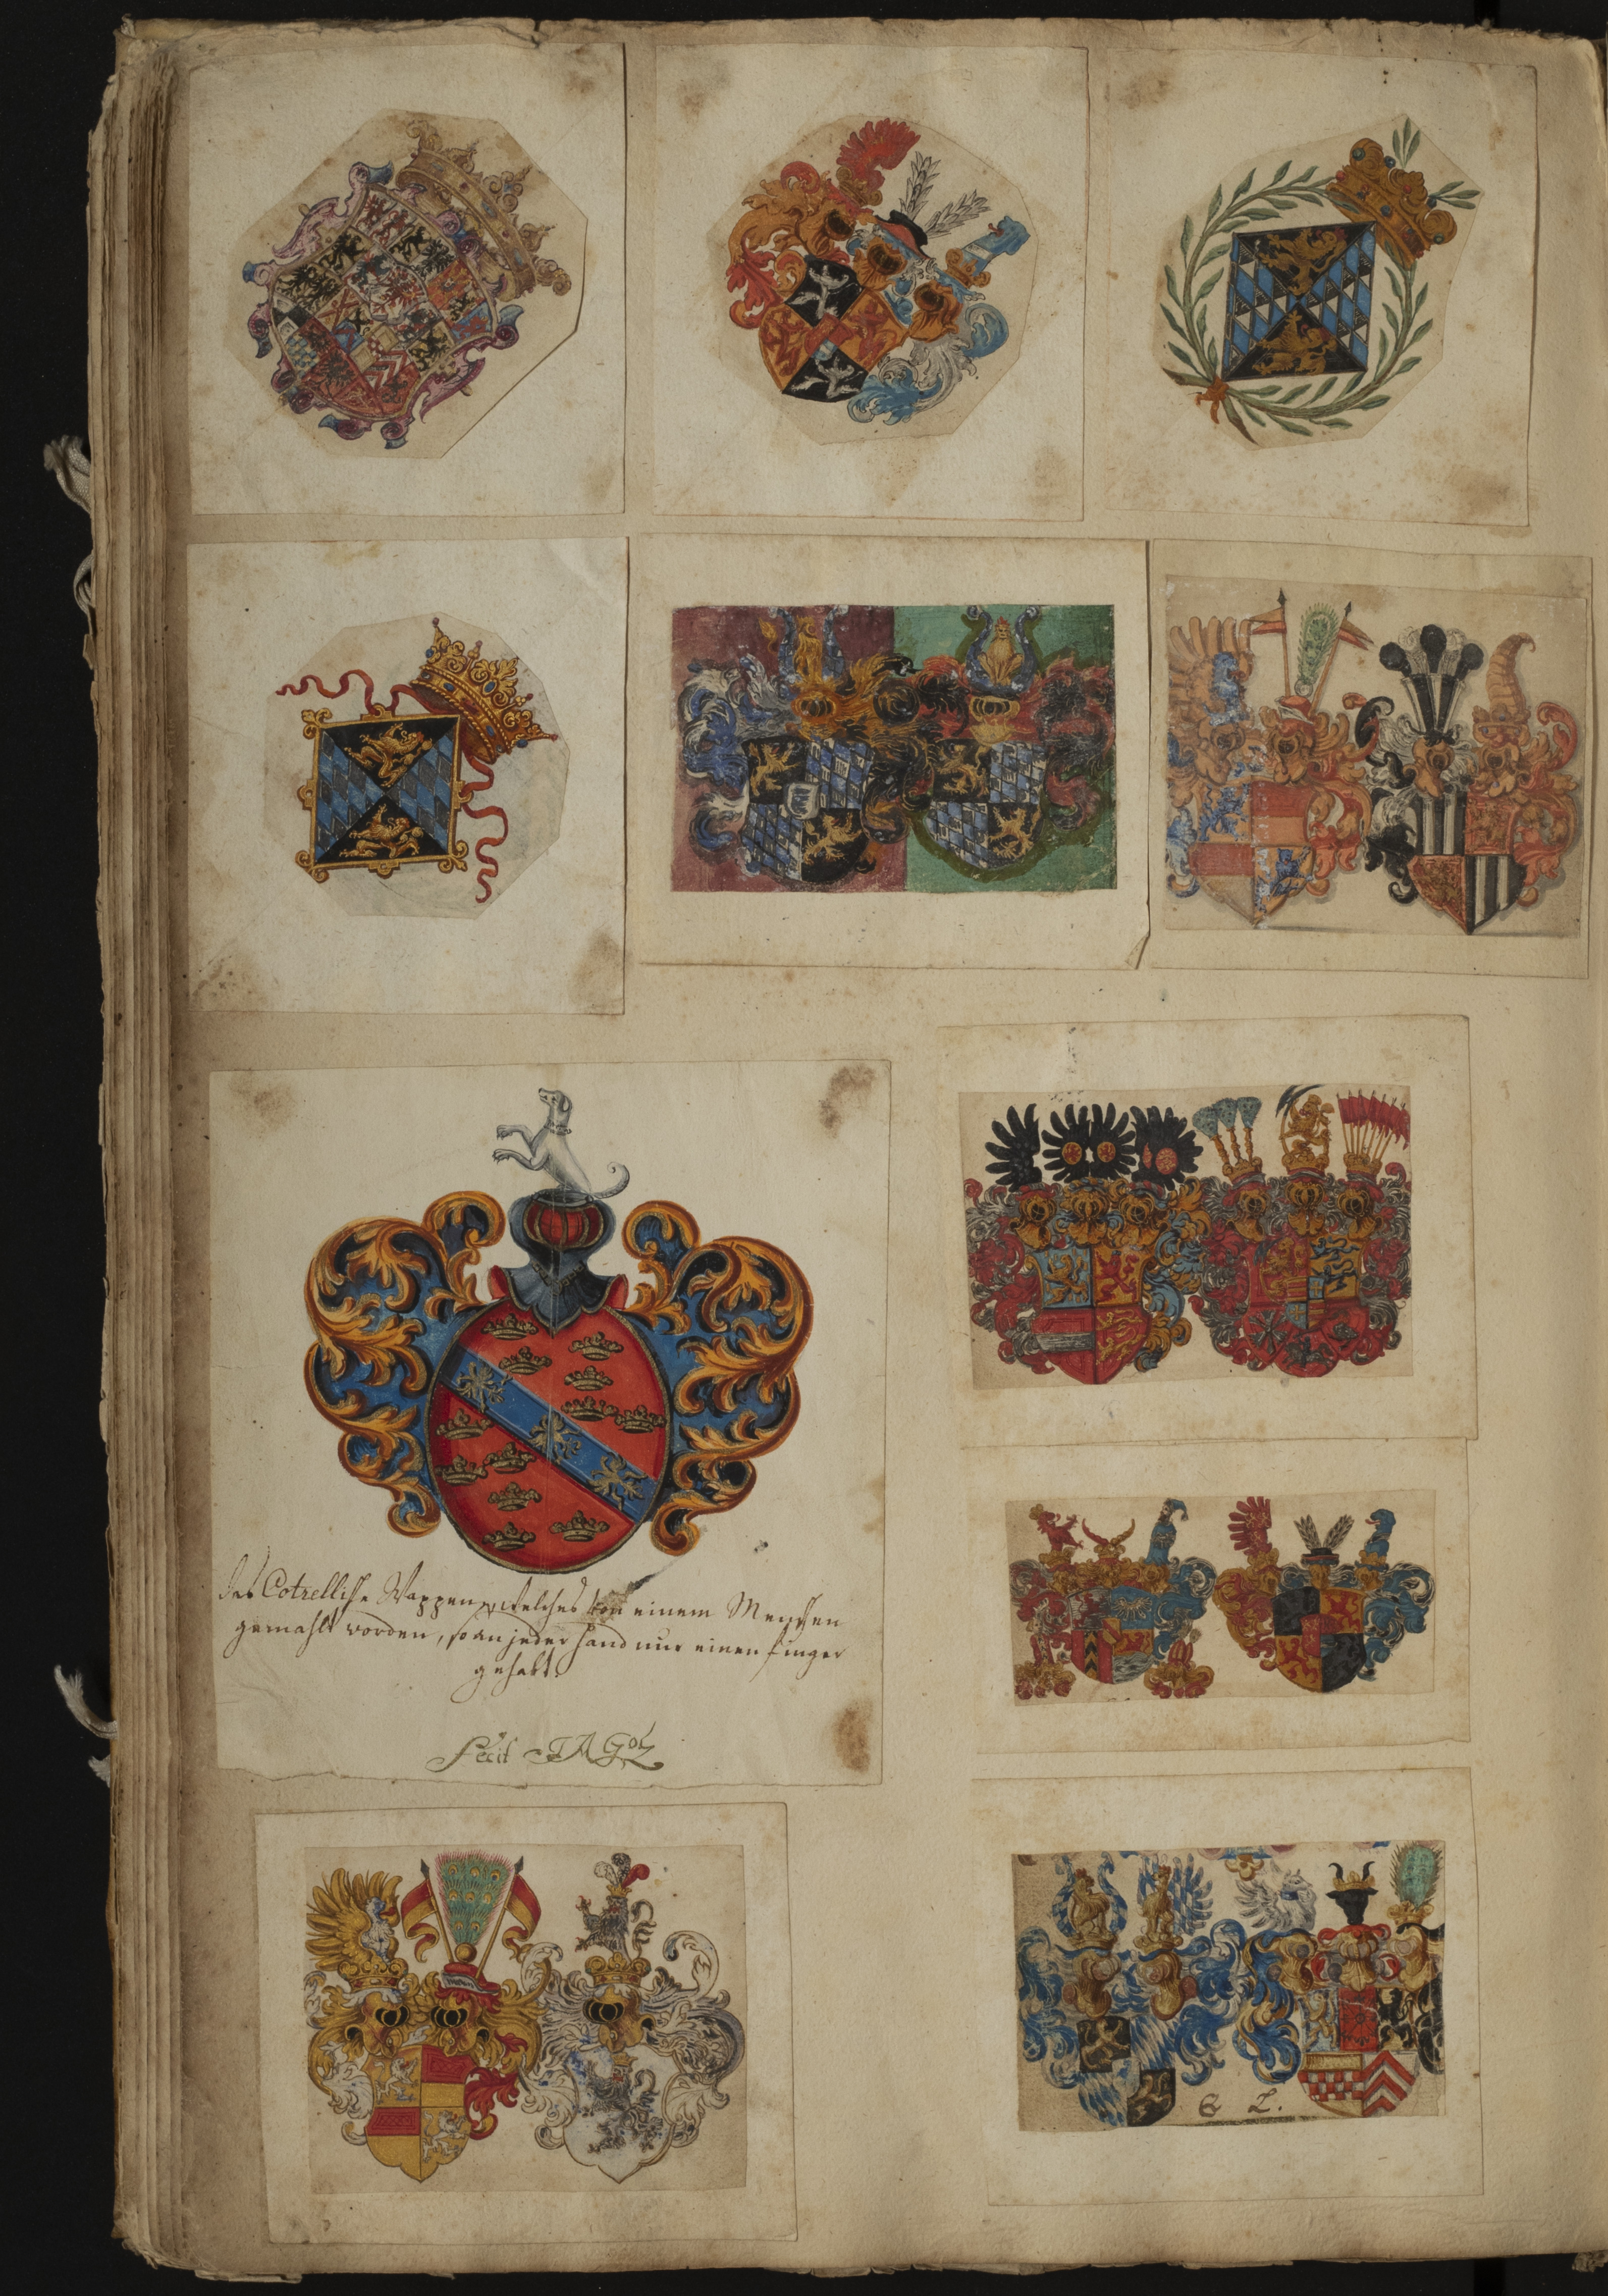 das Cotrellische Wappen, welches von einem Menschen
gemahlt worden, so an jeder hand nur einen finger
gehabt.
Fecit
G L.